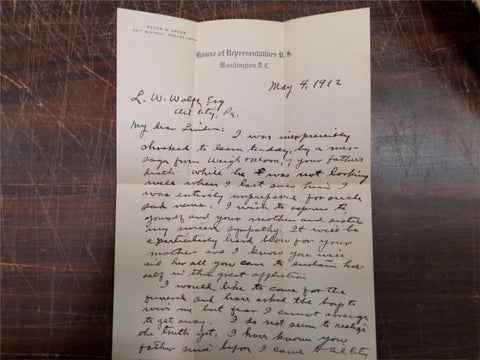 PETER M. SPEER
28TH DISTRICT PENNSYLVANIA
House of Representatives U.S.
Washington, D.C.
May 4, 1912
L. W. Wolfe, Esq
Oil City, Pa.
My dear Linton: I was inexpressibly
shocked to learn to-day, by a mes-
sage from Weigh & Moon, of your father's
death. While he was not looking
well when I last saw him I
was entirely unprepared for such
sad news. I wish to express to
yourself and your mother and sister
my sincere sympathy. It will be
a particularly hard blow for your
mother and I know you will
aid her all you can to sustain her-
self in this great affliction.
I would like to come for the
funeral and have asked the boys to
wire me but fear I cannot arrange
to get away. I do not seem to realize
the truth yet. I have known your
father since before I came to Oil City